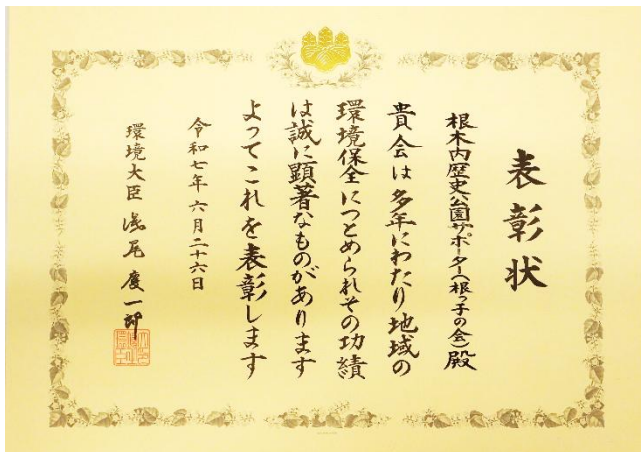 表彰状
根木内歴史公園サポーター（根っ子の会）殿
貴会は多年にわたり地域の
環境保全につとめられその功績
は誠に顕著なものがあります
よってこれを表彰します
令和七年六月二十六日
環境大臣 浅尾慶一郎